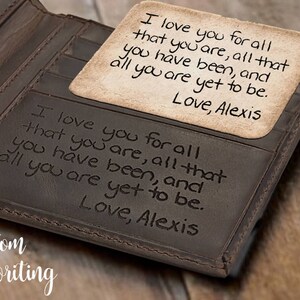 I love you for all
that you are, all that
you have been, and
all you are yet to be.
Love, Alexis
I love you for all
that you are, all that
you have been, and
all you are yet to be.
Love, Alexis